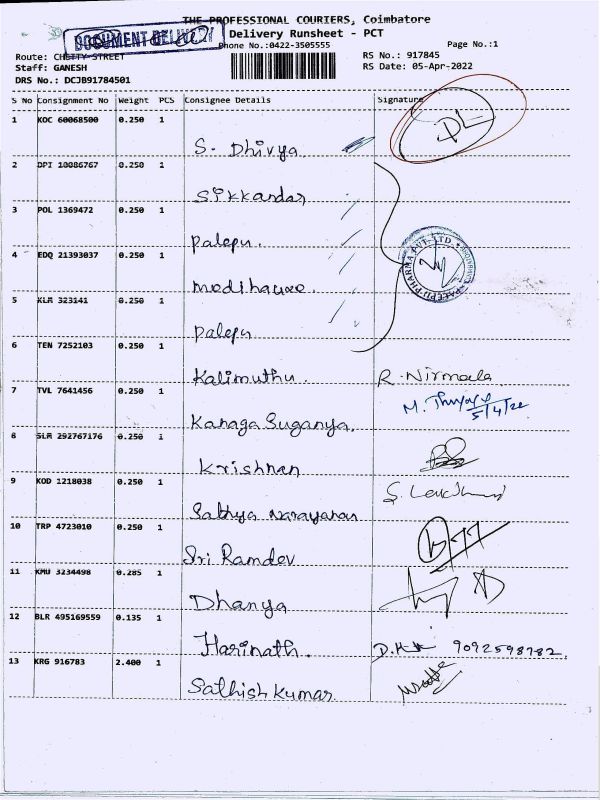 THE PROFESSIONAL COURIERS, Coimbatore
DOCUMENT DELIVERY
Delivery Runsheet - PCT
Phone No.:0422-3505555
Page No.:1
Route: CHETTY STREET
RS No.: 917845
Staff: GANESH
RS Date: 05-Apr-2022
DRS No.: DCJB91784501
S No Consignment No Weight PCS Consignee Details Signature
1 KOC 60068500 0.250 1
S. Dhivya
2 DPI 10086767 0.250 1
Sikkandar
3 POL 1369472 0.250 1
Palepu.
4 EDQ 21393037 0.250 1
5 KLM 323141 0.250 1
Palepu
6 TEN 7252103 0.250 1
Kalimuthu. R. Nirmala
7 TVL 7641456 0.250 1
5/4/22
Kanaga Suganya.
8 SLM 292767176 0.250 1
Krishnan
9 KOD 1218038 0.250 1
Sathya Narayanan
10 TRP 4723010 0.250 1
Sri Ramdev
11 KMU 3234498 0.285 1
Dhanya
12 BLR 495169559 0.135 1
Harinath. 9092598782
13 KRG 916783 2.400 1
Sathish Kumar